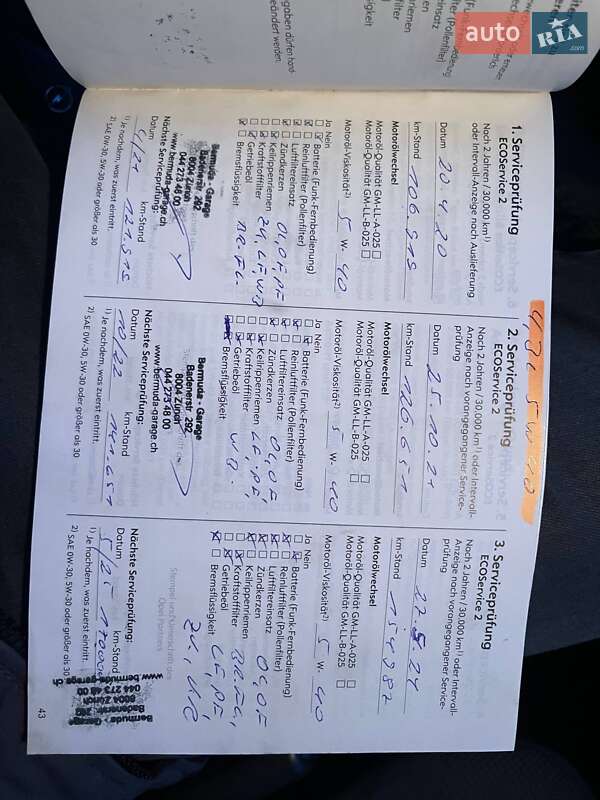 auto RIA.com
1. Serviceprüfung
ECOService 2
Nach 2 Jahren / 30.000 km¹⁾
oder Intervall-Anzeige nach Auslieferung
Datum 20.4.20
km-Stand 106.915
Motorölwechsel
Motoröl-Qualität GM-LL-A-025
Motoröl-Qualität GM-LL-B-025
Motoröl-Viskosität²⁾ 5 W- 40
Ja Nein
Batterie (Funk-Fernbedienung)
Reinluftfilter (Pollenfilter)
Luftfiltereinsatz
Zündkerzen
Keilrippenriemen
Kraftstofffilter
Getriebeöl
Bremsflüssigkeit
Bermuda - Garage
Badenerstr. 292
8004 Zürich
044 273 48 00
www.bermuda-garage.ch
Nächste Serviceprüfung:
Datum km-Stand
4/21 121.915
1) Je nachdem, was zuerst eintritt.
2) SAE 0W-30, 5W-30 oder größer als 30
4,3 L 5W40
2. Serviceprüfung
ECOService 2
Nach 2 Jahren / 30.000 km¹⁾ oder Intervall-
Anzeige nach vorangegangener Service-
prüfung
Datum 25.10.21
km-Stand 126.651
Motorölwechsel
Motoröl-Qualität GM-LL-A-025
Motoröl-Qualität GM-LL-B-025
Motoröl-Viskosität²⁾ 5 W- 40
Ja Nein
Batterie (Funk-Fernbedienung)
Reinluftfilter (Pollenfilter)
Luftfiltereinsatz
Zündkerzen
Keilrippenriemen
Kraftstofffilter
Getriebeöl
Bremsflüssigkeit
Bermuda - Garage
Badenerstr. 292
8004 Zürich
044 273 48 00
www.bermuda-garage.ch
Nächste Serviceprüfung:
Datum km-Stand
10/22 141.651
1) Je nachdem, was zuerst eintritt.
2) SAE 0W-30, 5W-30 oder größer als 30
3. Serviceprüfung
ECOService 2
Nach 2 Jahren / 30.000 km¹⁾ oder Intervall-
Anzeige nach vorangegangener Service-
prüfung
Datum 27.5.24
km-Stand 154987
Motorölwechsel
Motoröl-Qualität GM-LL-A-025
Motoröl-Qualität GM-LL-B-025
Motoröl-Viskosität²⁾ 5 W- 40
Ja Nein
Batterie (Funk-Fernbedienung)
Reinluftfilter (Pollenfilter)
Luftfiltereinsatz
Zündkerzen
Keilrippenriemen
Kraftstofffilter
Getriebeöl
Bremsflüssigkeit
Stempel und Unterschrift des
Opel Partners
Nächste Serviceprüfung:
Datum km-Stand
5/25
1) Je nachdem, was zuerst eintritt.
2) SAE 0W-30, 5W-30 oder größer als 30
Bermuda - Garage
Badenerstr. 292
8004 Zürich
044 273 48 00
www.bermuda-garage.ch
43